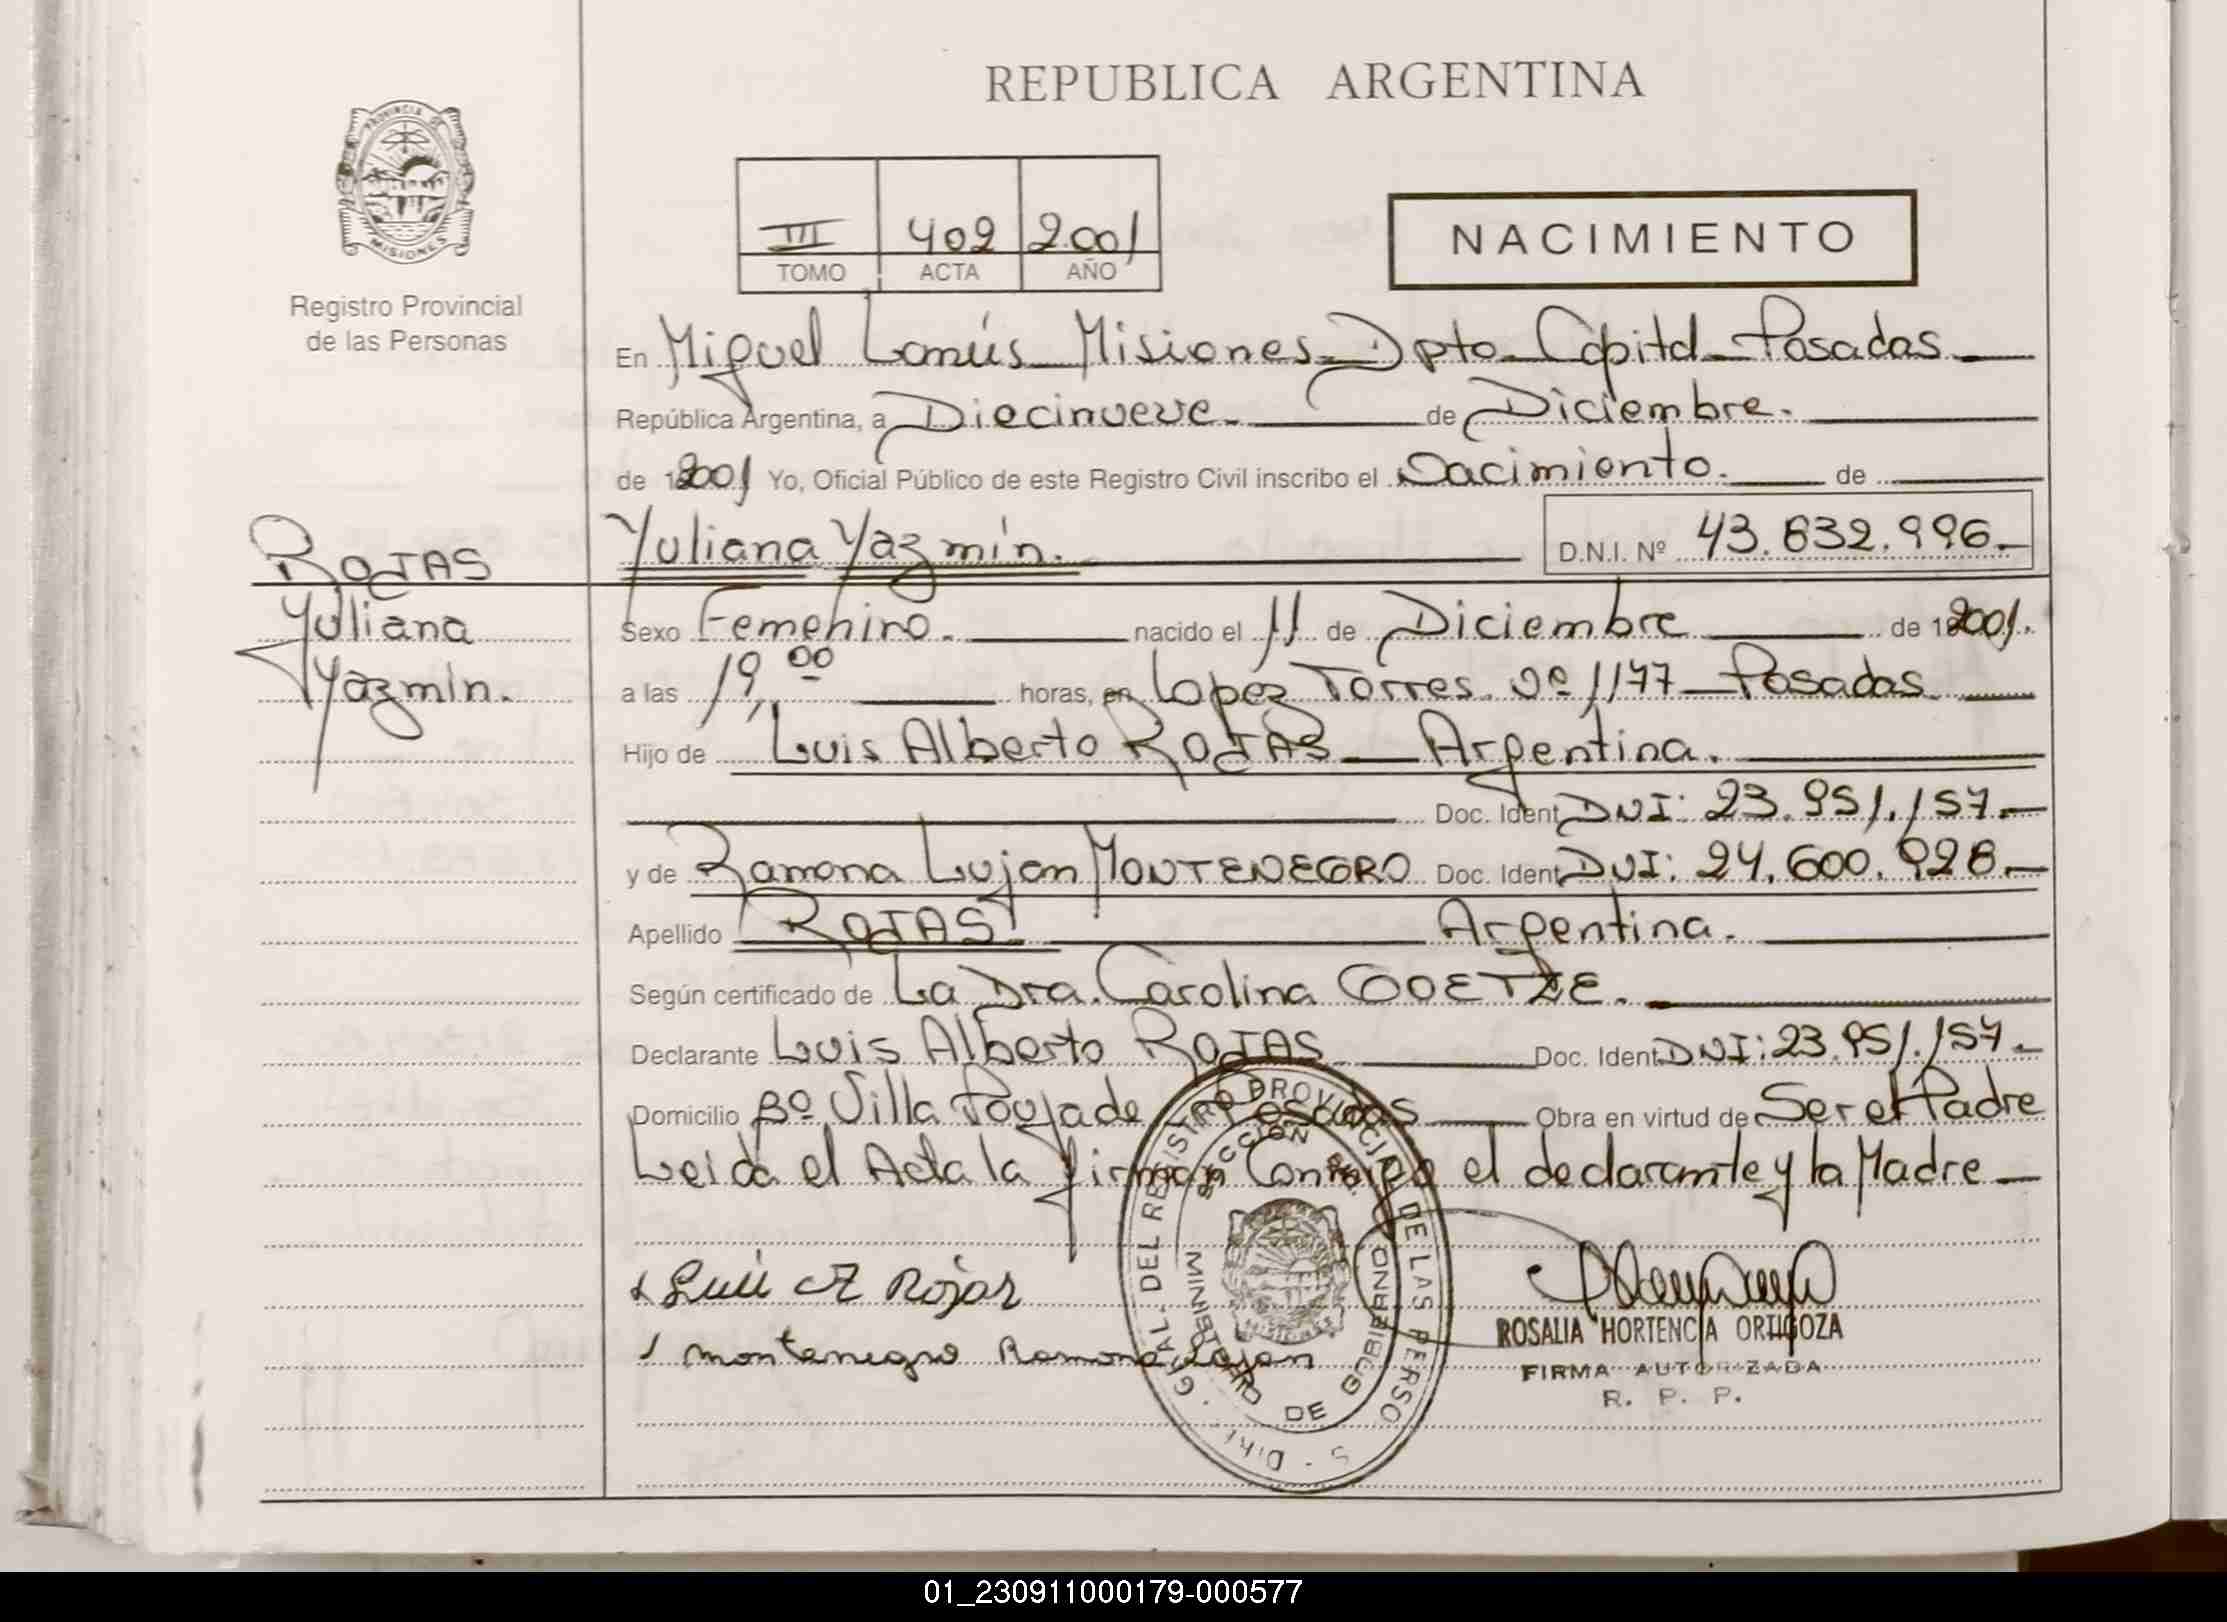 REPUBLICA ARGENTINA
PROVINCIA DE
MISIONES
Registro Provincial
de las Personas
III 402 2.001
TOMO ACTA AÑO
NACIMIENTO
En Miguel Lanús Misiones Dpto Capital Posadas
República Argentina, a Diecinueve. de Diciembre.
de 2001 Yo, Oficial Público de este Registro Civil inscribo el Nacimiento. de
ROJAS
Yuliana
Yazmín.
Yuliana Yazmín. D.N.I. Nº 43.632.996.
Sexo Femenino. nacido el 11 de Diciembre de 2001.
a las 19,00 horas, en Lopez Torres Nº 1177 Posadas
Hijo de Luis Alberto ROJAS Argentina.
Doc. Ident DNI: 23.951.157.
y de Ramona Lujan MONTENEGRO Doc. Ident DNI: 24.600.928.
Apellido ROJAS Argentina.
Según certificado de La Dra. Carolina GOETZE.
Declarante Luis Alberto ROJAS Doc. Ident DNI: 23.951.157.
Domicilio Bº Villa Poujade Posadas Obra en virtud de Ser el Padre
Leida el Acta la firman Conmigo el declarante y la Madre
Luis A Rojas
montenegro Ramona Lujan
DIR. GRAL. DEL REGISTRO PROVINCIAL DE LAS PERSONAS
MINISTERIO DE GOBIERNO
MISIONES
ROSALIA HORTENCIA ORTIGOZA
FIRMA AUTORIZADA
R. P. P.
01_230911000179-000577